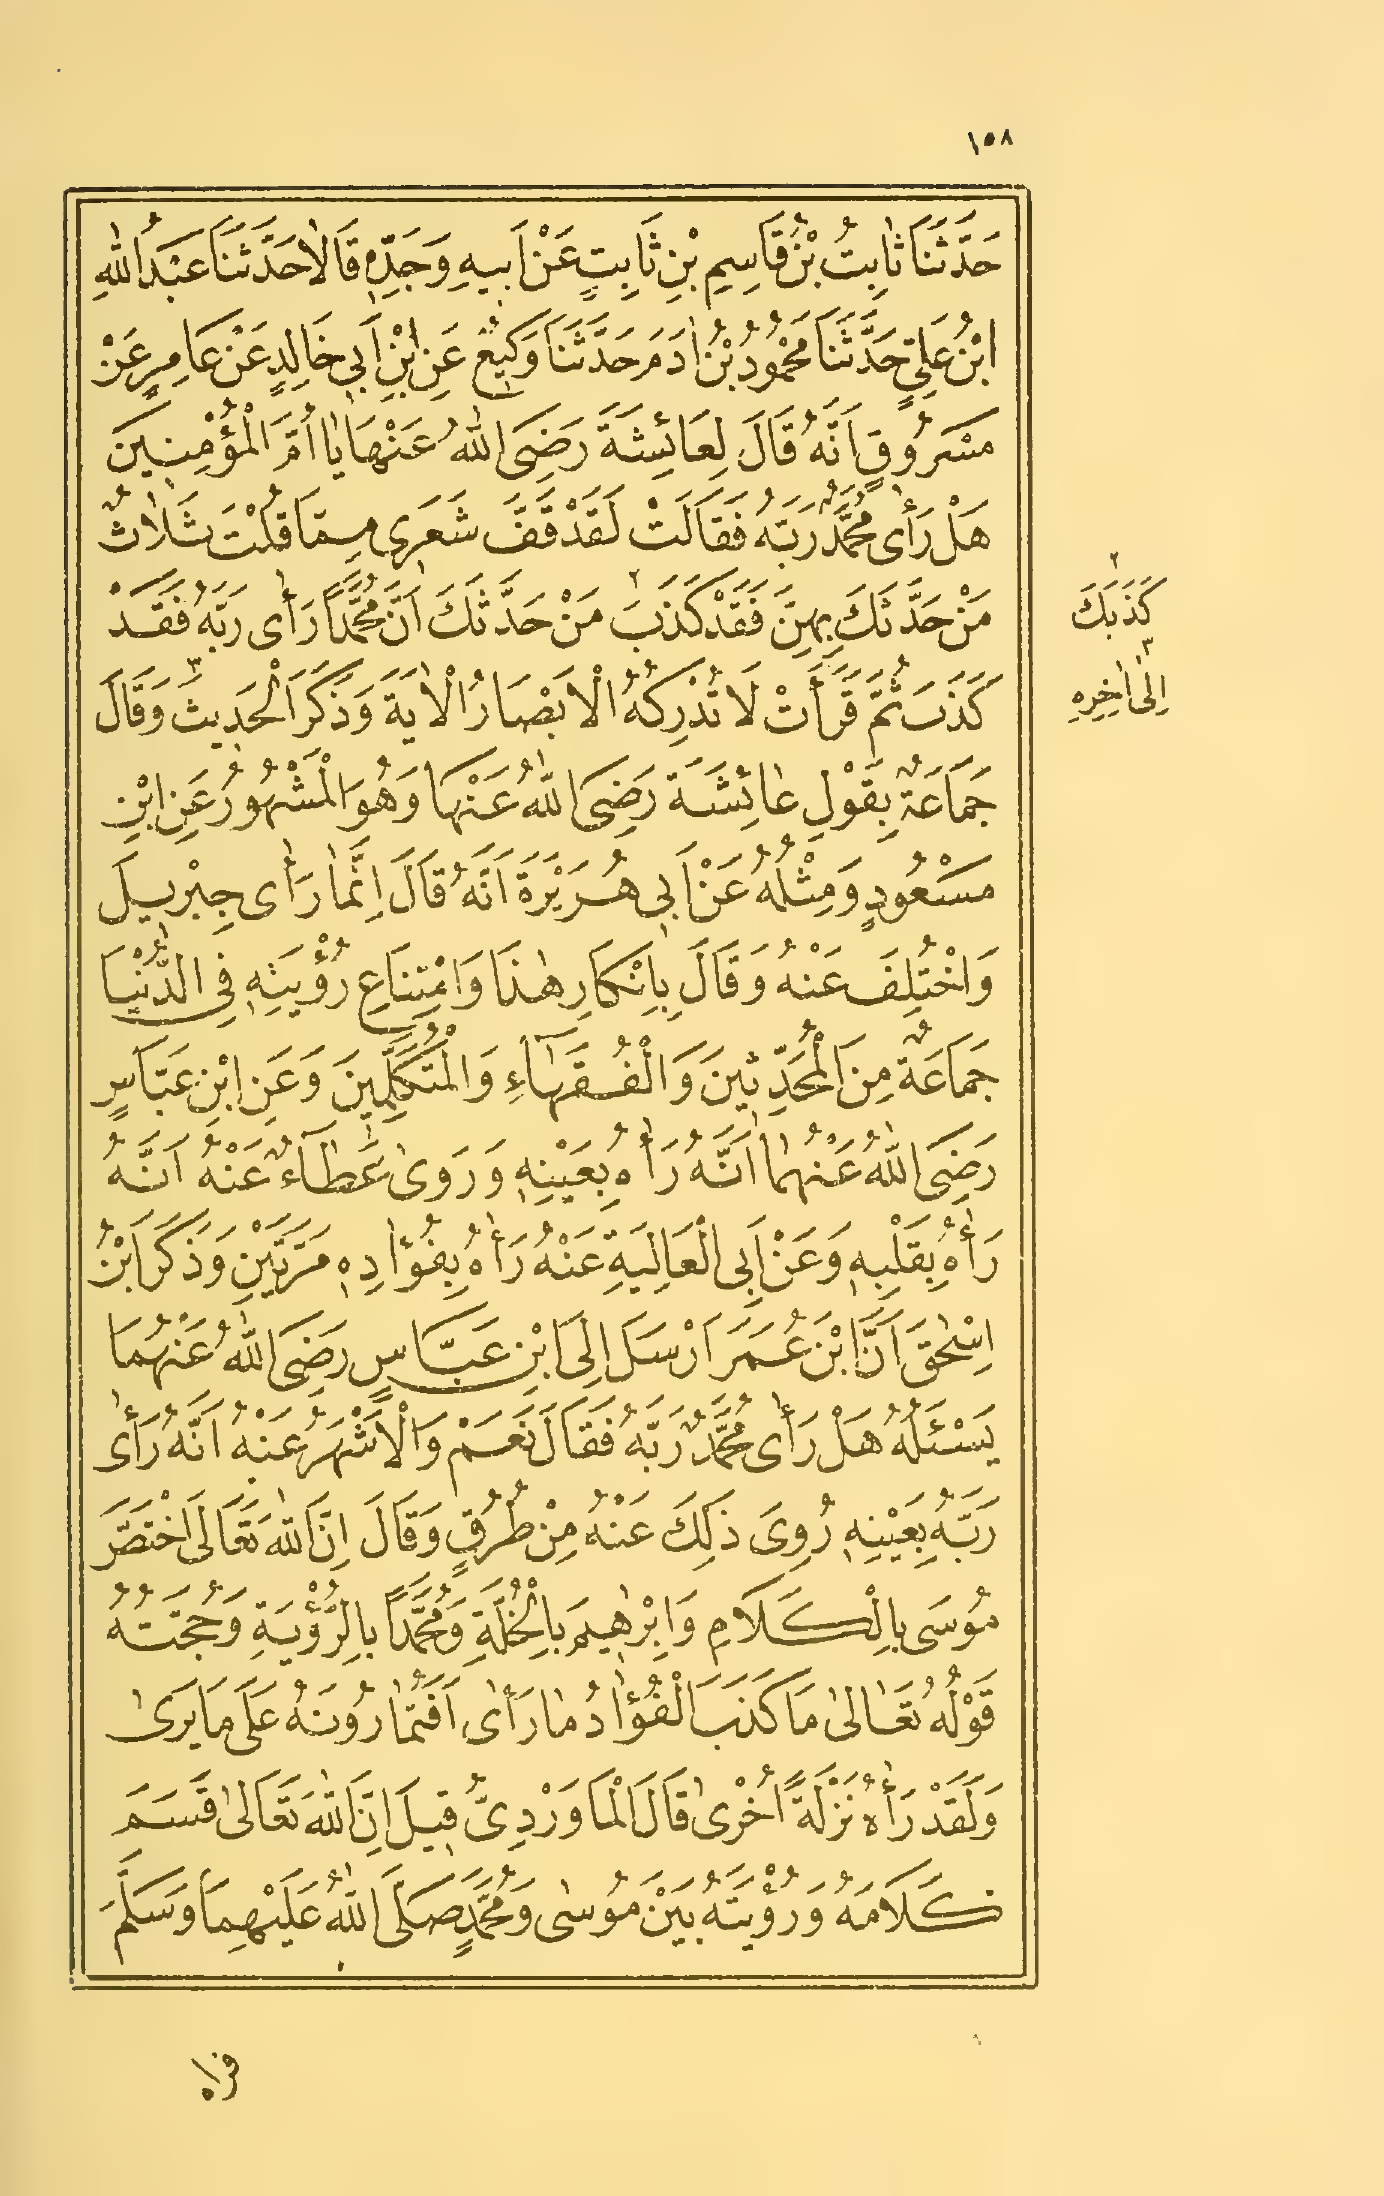 ١٥٨
حَدَّثَنَا ثَابِتُ بْنُ قَاسِمِ بْنِ ثَابِتٍ عَنْ اَبِيهِ وَجَدِّهٖ قَالَا حَدَّثَنَا عَبْدُ اللّٰهِ
ابْنُ عَلِيٍّ حَدَّثَنَا مَحْمُودُ بْنُ اٰدَمَ حَدَّثَنَا وَكِيعٌ عَنِ ابْنِ اَبِي خَالِدٍ عَنْ عَامِرٍ عَنْ
مَسْرُوقٍ اَنَّهُ قَالَ لِعَائِشَةَ رَضِيَ اللّٰهُ عَنْهَا يَا اُمَّ الْمُؤْمِنِينَ
هَلْ رَأٰى مُحَمَّدٌ رَبَّهُ فَقَالَتْ لَقَدْ قَفَّ شَعَرِي مِمَّا قُلْتَ ثَلَاثٌ
مَنْ حَدَّثَكَ بِهِنَّ فَقَدْ كَذَبَ ٢ مَنْ حَدَّثَكَ اَنَّ مُحَمَّدًا رَأٰى رَبَّهُ فَقَدْ
كَذَبَ ثُمَّ قَرَأَتْ لَا تُدْرِكُهُ الْاَبْصَارُ الْاٰيَةَ وَذَكَرَ الْحَدِيثَ ٣ وَقَالَ
جَمَاعَةٌ بِقَوْلِ عَائِشَةَ رَضِيَ اللّٰهُ عَنْهَا وَهُوَ الْمَشْهُورُ عَنِ ابْنِ
مَسْعُودٍ وَمِثْلُهُ عَنْ اَبِي هُرَيْرَةَ اَنَّهُ قَالَ اِنَّمَا رَأٰى جِبْرِيلَ
وَاخْتُلِفَ عَنْهُ وَقَالَ بِاِنْكَارِ هٰذَا وَامْتِنَاعِ رُؤْيَتِهٖ فِي الدُّنْيَا
جَمَاعَةٌ مِنَ الْمُحَدِّثِينَ وَالْفُقَهَاءِ وَالْمُتَكَلِّمِينَ وَعَنِ ابْنِ عَبَّاسٍ
رَضِيَ اللّٰهُ عَنْهُمَا اَنَّهُ رَأٰهُ بِعَيْنِهٖ وَرَوٰى عَطَاءٌ عَنْهُ اَنَّهُ
رَأٰهُ بِقَلْبِهٖ وَعَنْ اَبِي الْعَالِيَةِ عَنْهُ رَأٰهُ بِفُؤَادِهٖ مَرَّتَيْنِ وَذَكَرَ ابْنُ
اِسْحٰقَ اَنَّ ابْنَ عُمَرَ اَرْسَلَ اِلَى ابْنِ عَبَّاسٍ رَضِيَ اللّٰهُ عَنْهُمَا
يَسْئَلُهُ هَلْ رَأٰى مُحَمَّدٌ رَبَّهُ فَقَالَ نَعَمْ وَالْاَشْهَرُ عَنْهُ اَنَّهُ رَأٰى
رَبَّهُ بِعَيْنِهٖ رُوِيَ ذٰلِكَ عَنْهُ مِنْ طُرُقٍ وَقَالَ اِنَّ اللّٰهَ تَعَالَى اخْتَصَّ
مُوسَى بِالْكَلَامِ وَاِبْرٰهِيمَ بِالْخُلَّةِ وَمُحَمَّدًا بِالرُّؤْيَةِ وَحُجَّتُهُ
قَوْلُهُ تَعَالٰى مَا كَذَبَ الْفُؤَادُ مَا رَأٰى اَفَتُمَارُونَهُ عَلَى مَا يَرٰى
وَلَقَدْ رَأٰهُ نَزْلَةً اُخْرٰى قَالَ الْمَاوَرْدِيُّ قِيلَ اِنَّ اللّٰهَ تَعَالٰى قَسَمَ
كَلَامَهُ وَرُؤْيَتَهُ بَيْنَ مُوسٰى وَمُحَمَّدٍ صَلَّى اللّٰهُ عَلَيْهِمَا وَسَلَّمَ
٢
كَذَبَكَ
٣
اِلٰى اٰخِرِهِ
فرأه